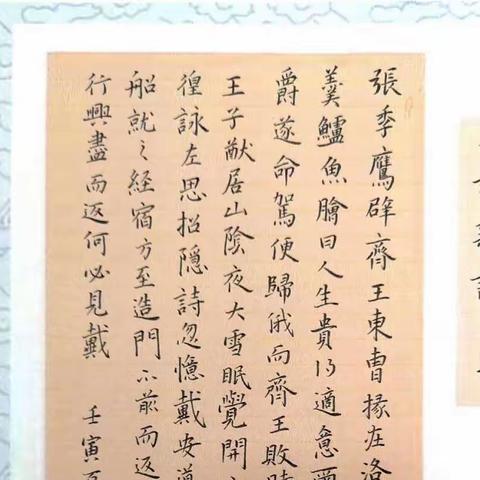 張季鷹辟齊王東曹掾在洛
羹鱸魚膾曰人生貴得適意爾
爵遂命駕便歸俄而齊王敗時
王子猷居山陰夜大雪眠覺開
徨詠左思招隱詩忽憶戴安道
船就之經宿方至造門不前而返
行興盡而返何必見戴
壬寅夏